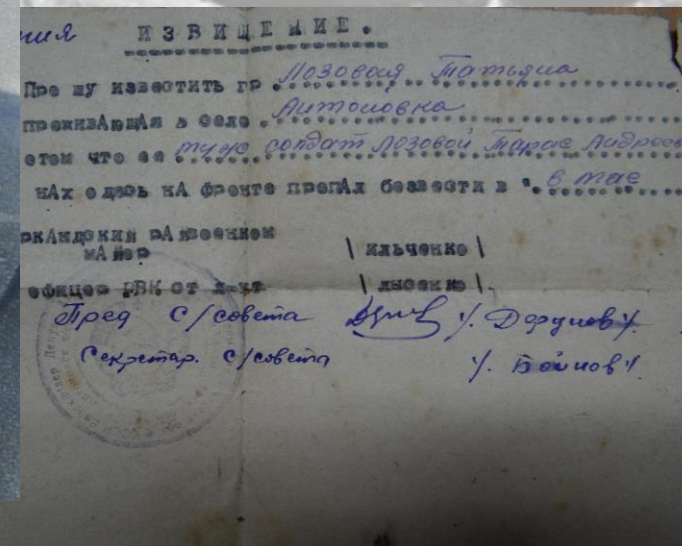 ния ИЗВИЩЕНИЕ.
Про шу известить гр. Лозовая Татьяна
проживАющАя в селе. Антоновка
етом что ее муж солдат Лозовой Тарас Андрее
нАх одясь нА фронте пропАл безвести в ". в мае
рАйвоенком
мАйор | ильченко |
офицер РВК ст л-нт | лысенко |.
Пред с/совета /. Доруновъ /.
Секретар. с/совета /. Бойнов /